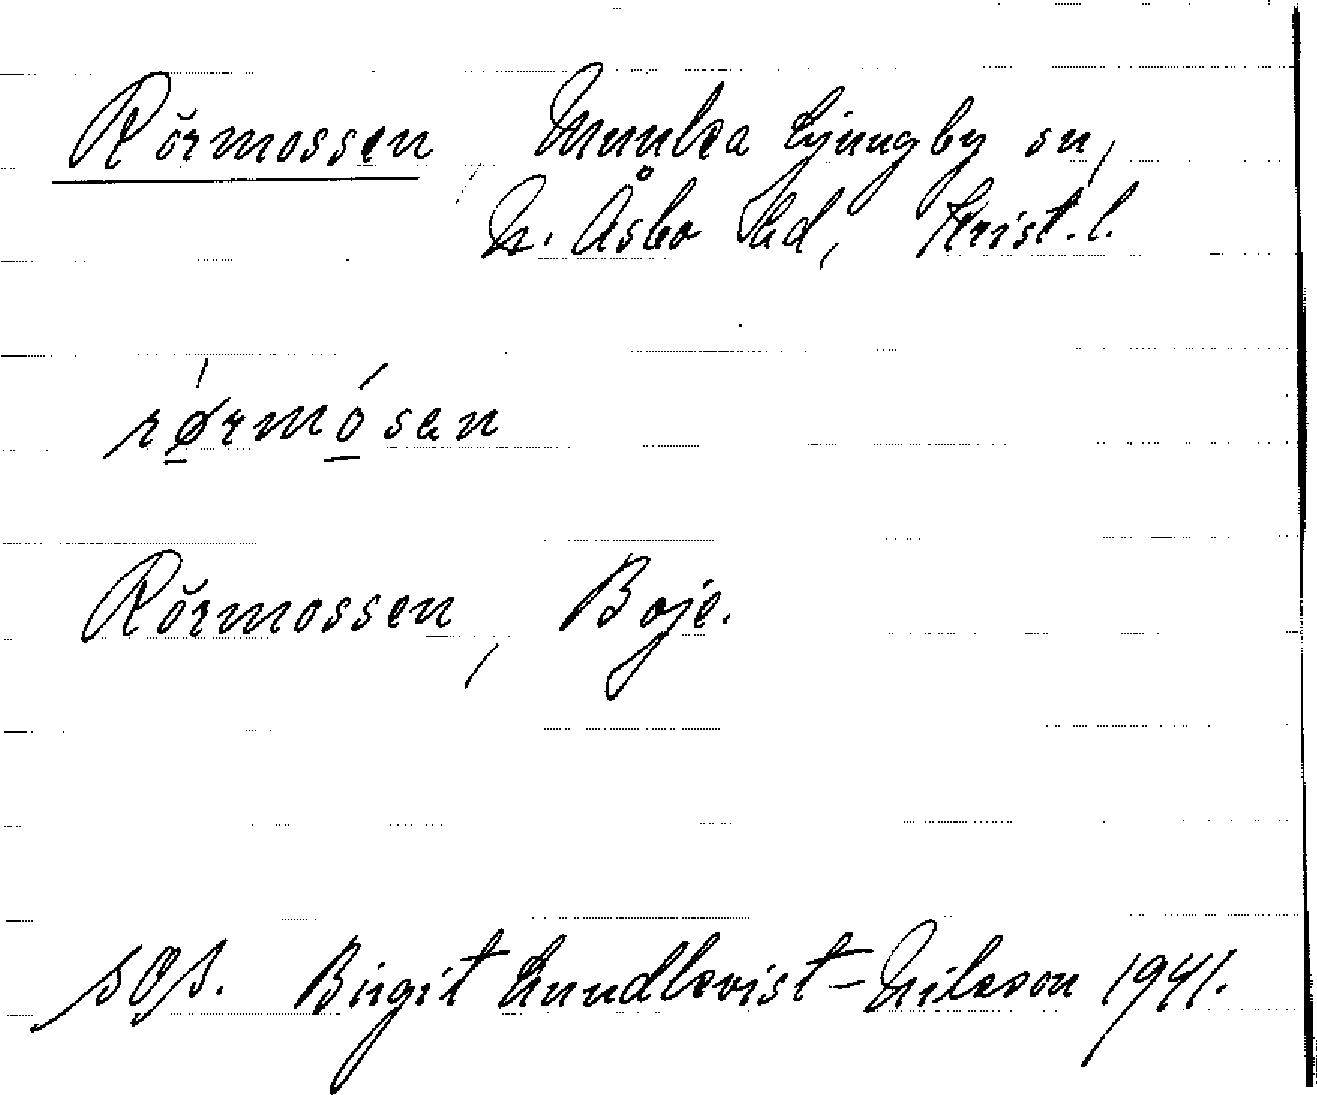 Rörmossen Munka Ljungby sn,
N. Åsbo hd, Krist. l.
rø̱rmó̱san
Rörmossen, Boje.
sos. Birgit Lundkvist-Nilsson 1941.